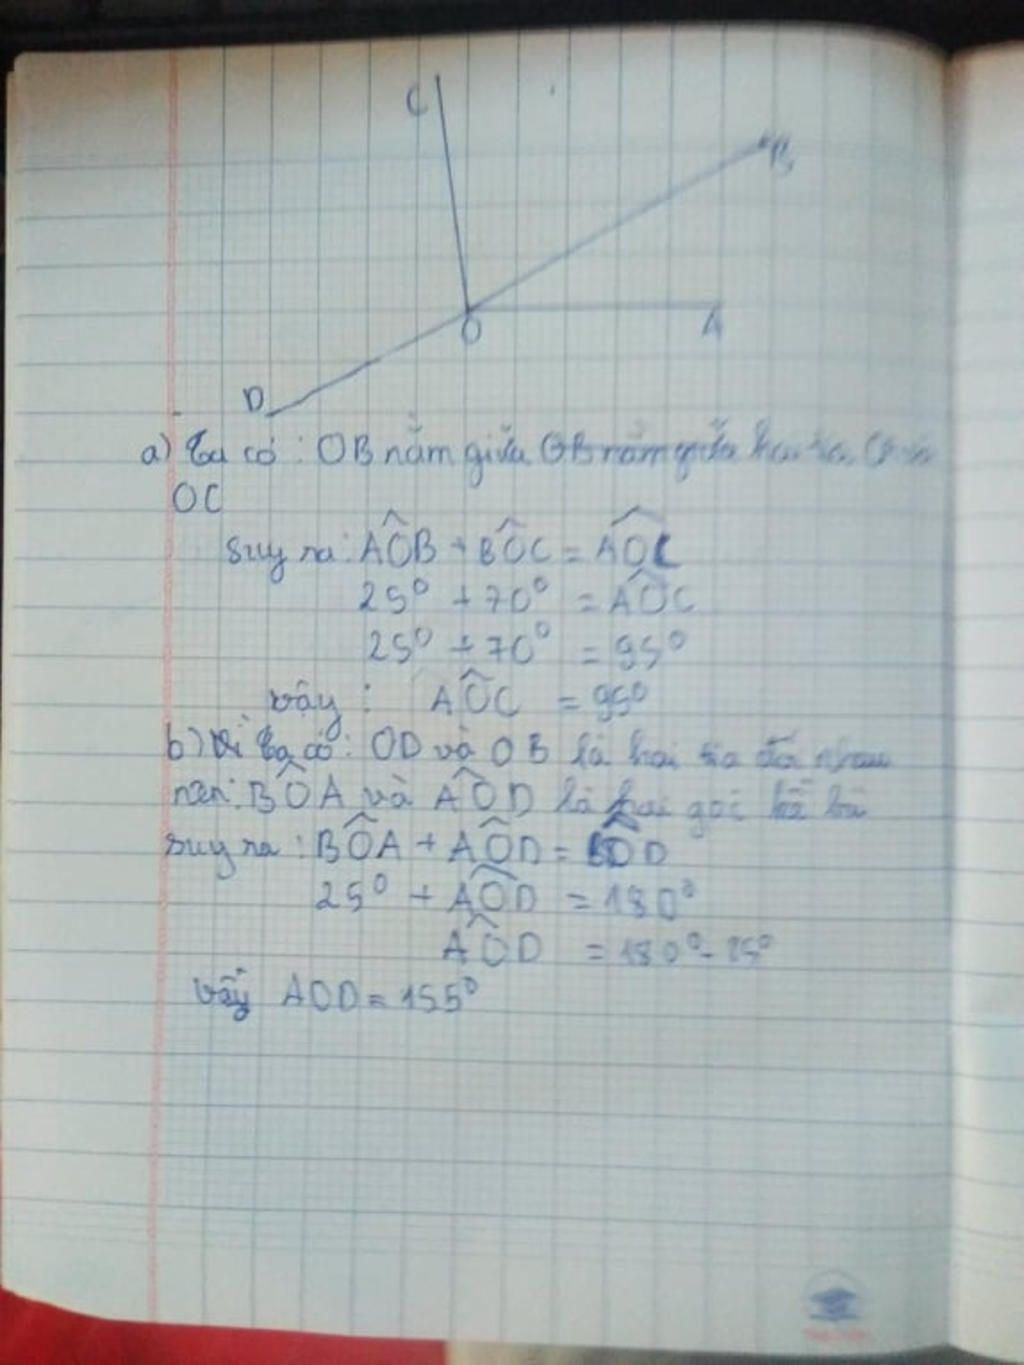 C
B
O
A
D
a) Ta có: OB nằm giữa OB nằm giữa hai tia
OC
Suy ra: AÔB + BÔC = AÔC
25⁰ + 70⁰ = AÔC
25⁰ + 70⁰ = 95⁰
Vậy: AÔC = 95⁰
b) Vì Ta có: OD và OB là hai tia đối nhau
nên: BÔA và AÔD là hai góc kề bù
Suy ra: BÔA + AÔD = BÔD
25⁰ + AÔD = 180⁰
AÔD = 180⁰ - 25⁰
Vậy AOD = 155⁰